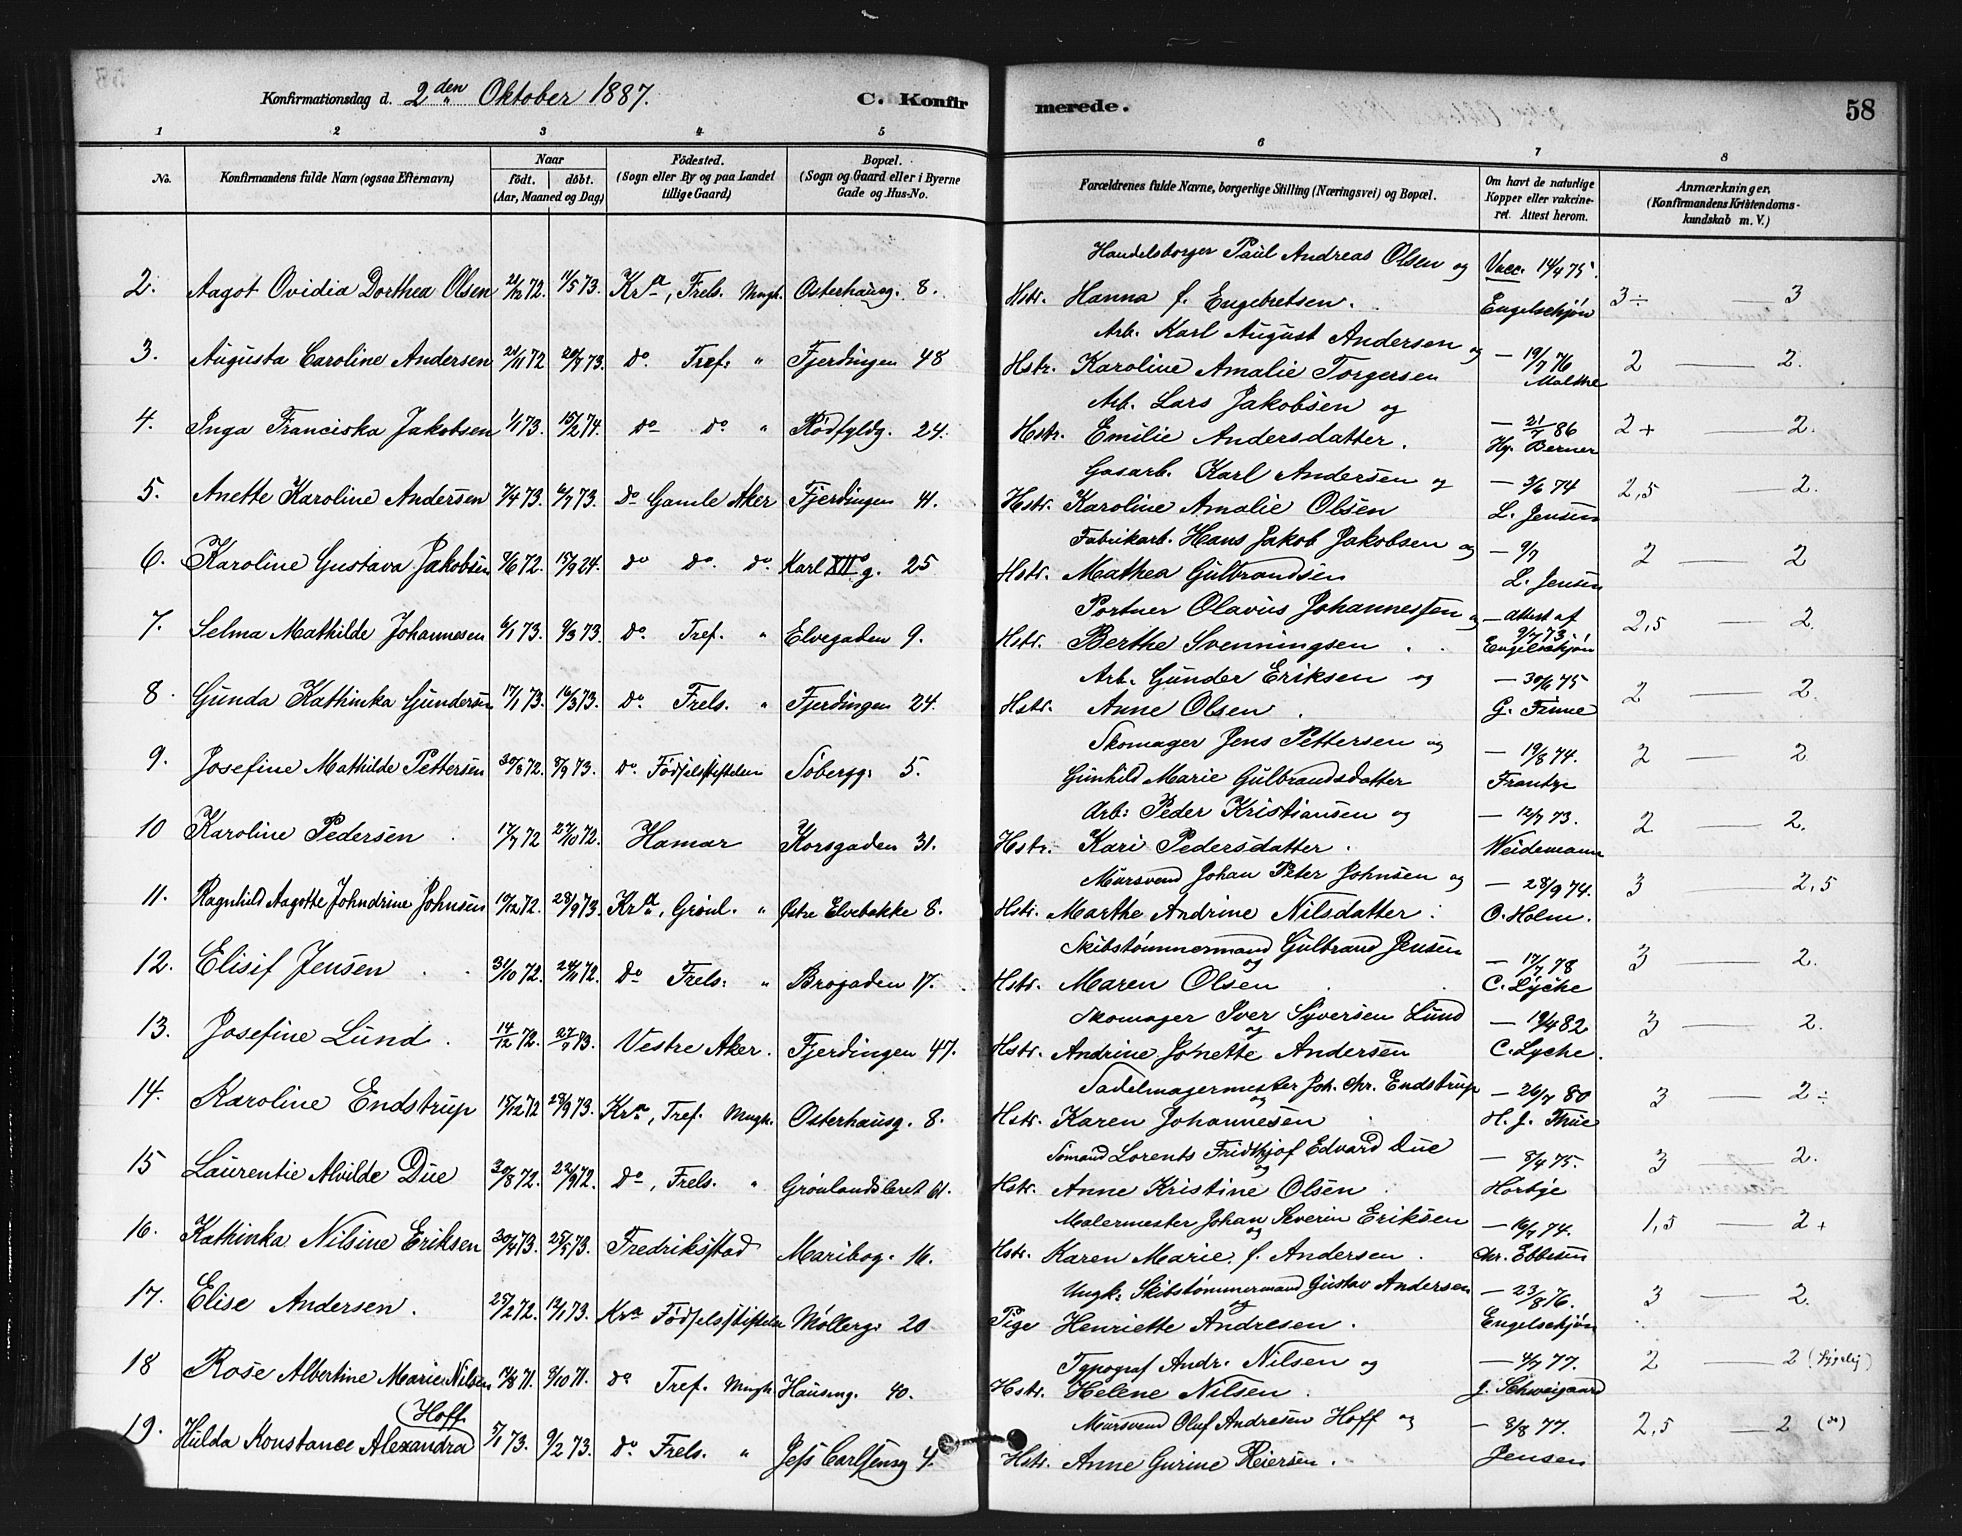 Konfirmationsdag d. 2den Oktober 1887. C. Konfirmerede. 58
1 2 3 4 5 6 7 8
No. Konfirmandens fulde Navn (ogsaa Efternavn) Naar födt. döbt. (Aar, Maaned og Dag) Födested. (Sogn eller By og paa Landet tillige Gaard) Bopæl. (Sogn og Gaard eller i Byerne Gade og Hus-No. Forældrenes fulde Navne, borgerlige Stilling (Næringsvei) og Bopæl. Om havt de naturlige Kopper eller vakcineret. Attest herom. Anmærkninger, (Konfirmandens Kristendomskundskab m. V.)
Handelsborger Paul Andreas Olsen og Vacc. 14/4 75.
2. Aagot Ovidia Dorthea Olsen 21/12 72. 11/5 73. Kra, Frels. Mngh. Osterhausg. 8. Hstr. Hanna f. Engebretsen. Engelschjøn 3÷ — 3
Arb. Karl August Andersen og
3. Augusta Caroline Andersen 21/11 72 20/7 73. do. Tref. " Fjerdingen 48 Hstr. Karoline Amalie Torgersen — 19/7 76 Malthe 2 — 2.
Arb. Lars Jakobsen og
4. Inga Franciska Jakobsen 1/1 73. 15/2 74. do do. " Rødfyldg. 24. Hstr. Emilie Andersdatter. — 21/7 86 Hj. Berner 2+ — 2.
Gasarb. Karl Andersen og
5. Anette Karoline Andersen 7/4 73. 6/7 73. do Gamle Aker Fjerdingen 41. Hstr. Karoline Amalie Olsen — 3/6 74 L. Jensen 2,5 — 2.
Fabrikarb. Hans Jakob Jakobsen og
6. Karoline Gustava Jakobsen 9/6 72. 15/9 24. do do. do. Karl XIIs g. 25 Hstr. Mathea Gulbrandsen — 9/7 L. Jensen 2 — 2
Portner Olavus Johannessen og
7. Selma Mathilde Johannesen 6/1 73. 9/3 73. do. Tref. " Elvegaden 9. Hstr. Berthe Svenningsen. — Attest af 9/7 73 Engelschjøn 2,5 — 2.
Arb. Gunder Eriksen og
8. Gunda Kathinka Gundersen 17/1 73. 16/3 73. do Frels. " Fjerdingen 24. Hstr. Anne Olsen. — 30/6 75 G. Finne 2 — 2.
Skomager Jens Pettersen og
9. Josefine Mathilde Pettersen 30/8 72. 8/9 73. do. Fødselsstiftelsen Søbergg. 5. Gunhild Marie Gulbrandsdatter — 19/8 74. Frantze 2 — 2
Arb: Peder Kristiansen og
10 Karoline Pedersen 17/7 72 27/10 72. Hamar Korsgaden 31. Hstr. Kari Pedersdatter. — 12/7 73. Weidemann 2 — 2.
Mursvend Johan Peter Johnsen og
11. Ragnhild Aagotte Johndrine Johnsen 19/12 72. 28/9 73. Kra, Grønl. " Østre Elvebakke 8. Hstr. Marthe Andrine Nilsdatter. — 28/9 74. O. Holm. 3 — 2,5
Skibstømmermand Gulbrand Jensen og
12. Elisif Jensen 31/10 72. 24/11 72. do Frels: " Brogaden 17. Hstr. Maren Olsen — 17/7 78 C. Lyche 3 — 2.
Skomager Iver Syversen Lund og
13. Josefine Lund. 14/12 72. 27/7 73. Vestre Aker. Fjerdingen 47. Hstr. Andrine Jonette Andersen — 19/4 82 C. Lyche. 3 — 2.
Sadelmagermester Joh. Chr. Endstrup og
14. Karoline Endstrup 15/12 72 28/9 73. Kra, Tref. Mngh. Osterhausg. 8. Hstr. Karen Johannesen — 26/7 80 H. J. Thue 3 — 2÷
Sømand Lorents Fridthjof Edvard Due og
15 Laurentie Alvilde Due 30/8 72. 22/9 72. do, Frels. " Grønlandsleret 61. Hstr. Anne Kristine Olsen — 8/4 75. Hørbye 3 — 2.
Malermester Johan Severin Eriksen og
16. Kathinka Nilsine Eriksen 30/4 73. 25/5 73. Fredriksstad Maribog. 16. Hstr. Karen Marie f. Andersen. — 16/7 74. Chr. Ebbesen 1,5 — 2+
Ungk: Skibstømmermand Gustav Andersen og
17. Elise Andersen. 25/12 72. 12/1 73. Kra Fødselsstiftelse Møllerg. 20 Pige Henriette Andresen. — 23/8 76. Engelschjøn 3 — 2.
Typograf Andr. Nilsen og
18 Rose Albertine Marie Nilsen 14/8 71. 8/10 71. do Tref. Mngh. Hausmg. 40. Hstr. Helene Nilsen. — 4/7 77. J. Schweigaard 2 — 2 (Sygelig)
Mursvend Oluf Andresen Hoff og
19. Hulda Konstance Alexandra Hoff 5/1 73. 9/2 73. do Frels. " Jess Carlsensg 4. Hstr. Anne Gurine Reiersen. — 8/8 77. Jensen 2,5 — 2 (do)